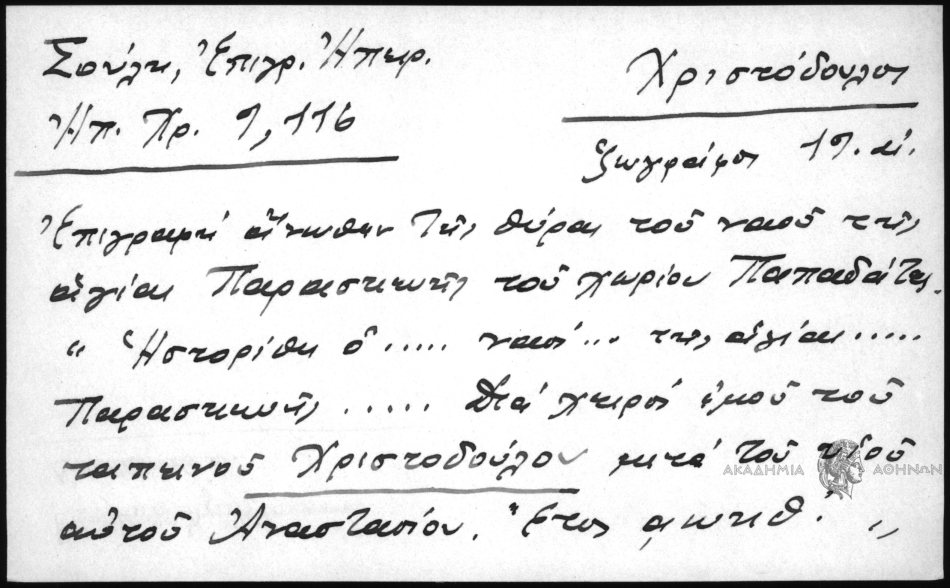 Σούλη, Ἐπιγρ. Ἠπειρ.
Ἠπ. Χρ. 9, 116
Χριστόδουλος
ζωγράφος 19. αἰ.
Ἐπιγραφή ἄνωθεν τῆς θύρας τοῦ ναοῦ τῆς
ἁγίας Παρασκευῆς τοῦ χωρίου Παπαδάτες.
" Ἡστορίθη ὁ ..... ναός ... της ἁγίας .....
Παρασκευῆς ..... Διά χειρός ἐμοῦ τοῦ
ταπεινοῦ Χριστοδούλου μετά τοῦ υἱοῦ
αὐτοῦ Ἀναστασίου. Ἔτος αωκθ. "
ΑΚΑΔΗΜΙΑ ΑΘΗΝΩΝ